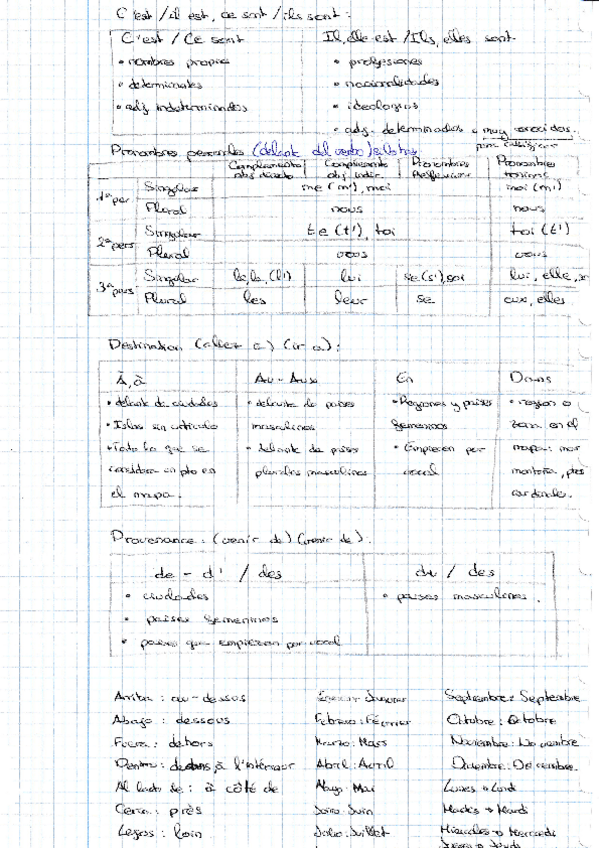 C'est / il est, ce sont / ils sont :
C'est / Ce sont
Il, elle est / Ils, elles sont
• nombres propios
• profesiones
• determinantes
• nacionalidades
• adj. indeterminados
• ideologías
• adj. determinados o muy conocidos.
Pronombres personales (delante del verbo)
Complemento obj. directo
Complemento obj. indir.
Pronombres Reflexivos
Pronombres tónicos
1ª per
Singular
me (m'), moi
moi (m')
Plural
nous
nous
2ª pers
Singular
te (t'), toi
toi (t')
Plural
vous
vous
3ª pers
Singular
le, la, (l')
lui
se (s'), soi
lui, elle,
Plural
les
leur
se
eux, elles
Destination (aller a) (ir a) :
À, à
Au - Aux
En
Dans
• delante de ciudades
• delante de países masculinos
• Regiones y países femeninos
• region o zona en el mapa: mar montaña,
cardinales.
• Islas sin artículo
• delante de países plurales masculinos
• Empiecen por vocal
• Todo lo que se considera un pto en el mapa.
Provenance : (venir de) (venir de).
de - d' / des
du / des
• ciudades
• países masculinos.
• países femeninos
• países que empiezan por vocal
Arriba : au-dessus
Septiembre : Septembre
Abajo : dessous
Febrero : Février
Octubre : Octobre
Fuera : dehors
Marzo : Mars
Noviembre : Novembre
Dentro : dedans, à l'intérieur
Abril : Avril
Diciembre : Décembre.
Al lado de : à côté de
Mayo : Mai
Lunes → Lundi
Cerca : près
Junio : Juin
Martes → Mardi
Lejos : loin
Julio : Juillet
Miercoles → Mercredi
Jueves → Jeudi